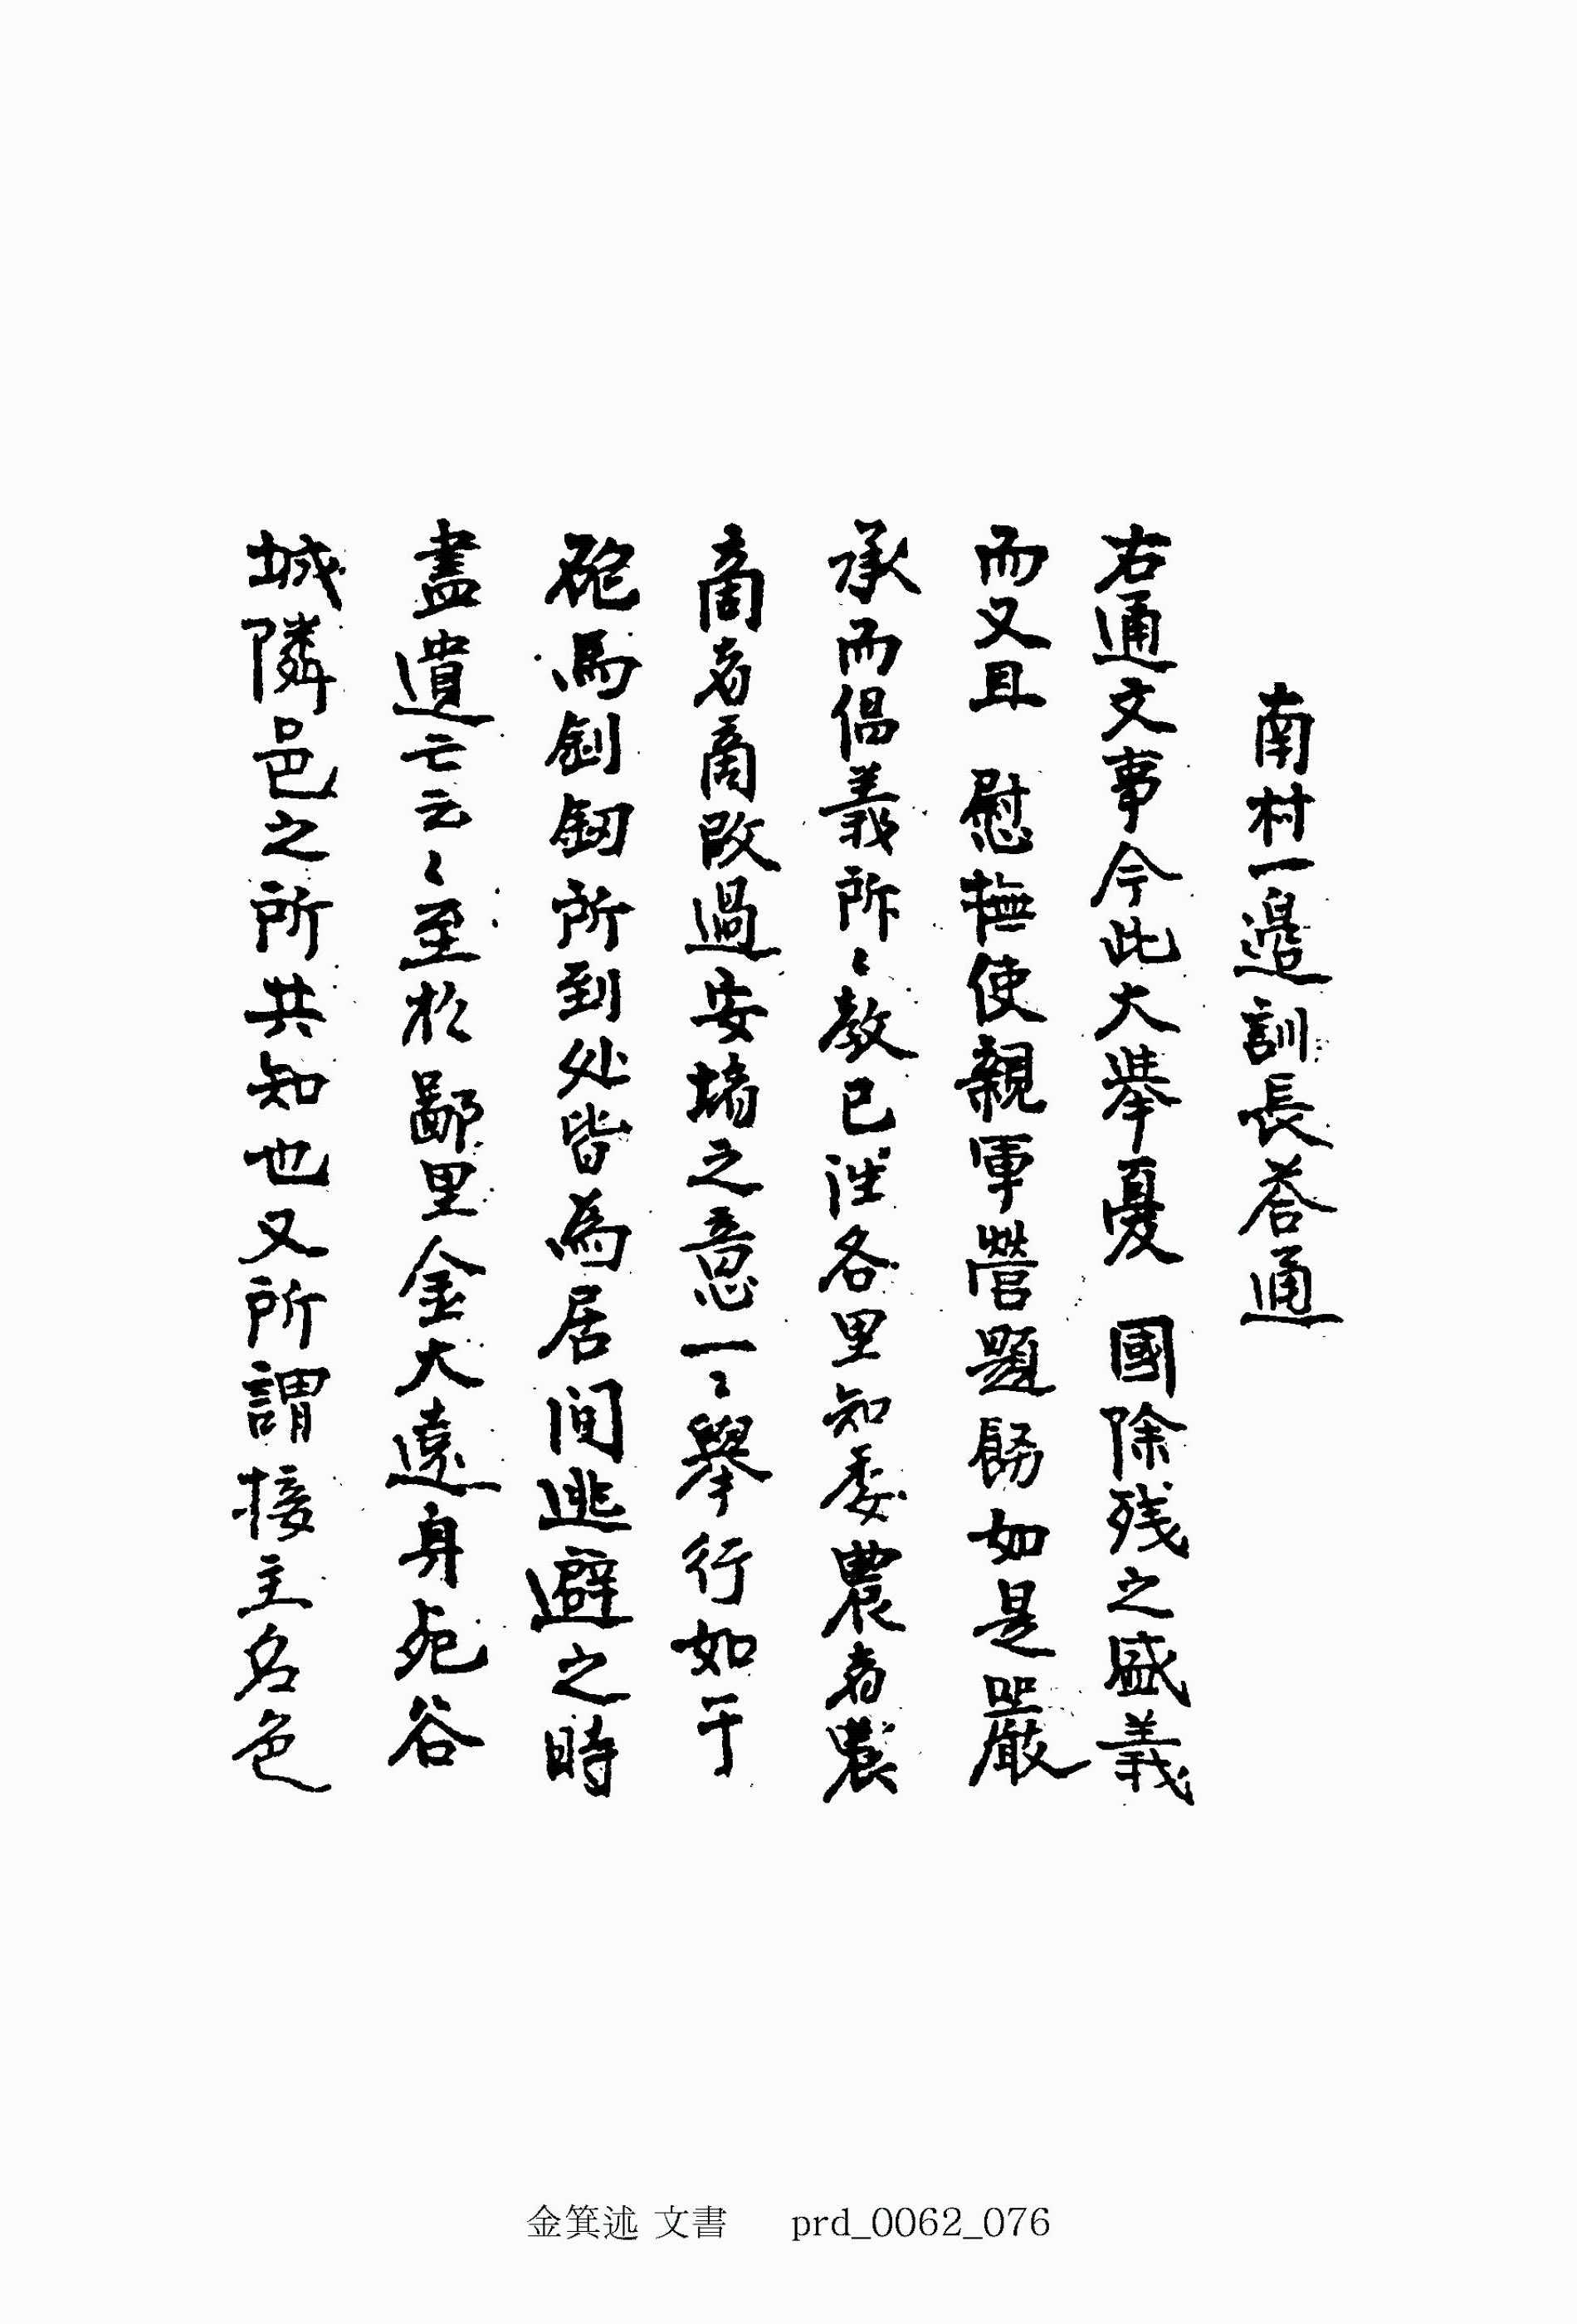 南村一邊訓長答通
右通文事今此大擧憂 國除残之盛義
而又且 慰撫使親軍營題飭如是嚴
承而倡義所〻教已徃各里知委農者農
商者商改過安堵之意一〻擧行如干
砲馬釗釰所到处皆爲居间逃避之時
盡遺亡云〻至於鄙里金大遠身死谷
城隣邑之所共知也又所謂接主名色
金箕述 文書 prd_0062_076